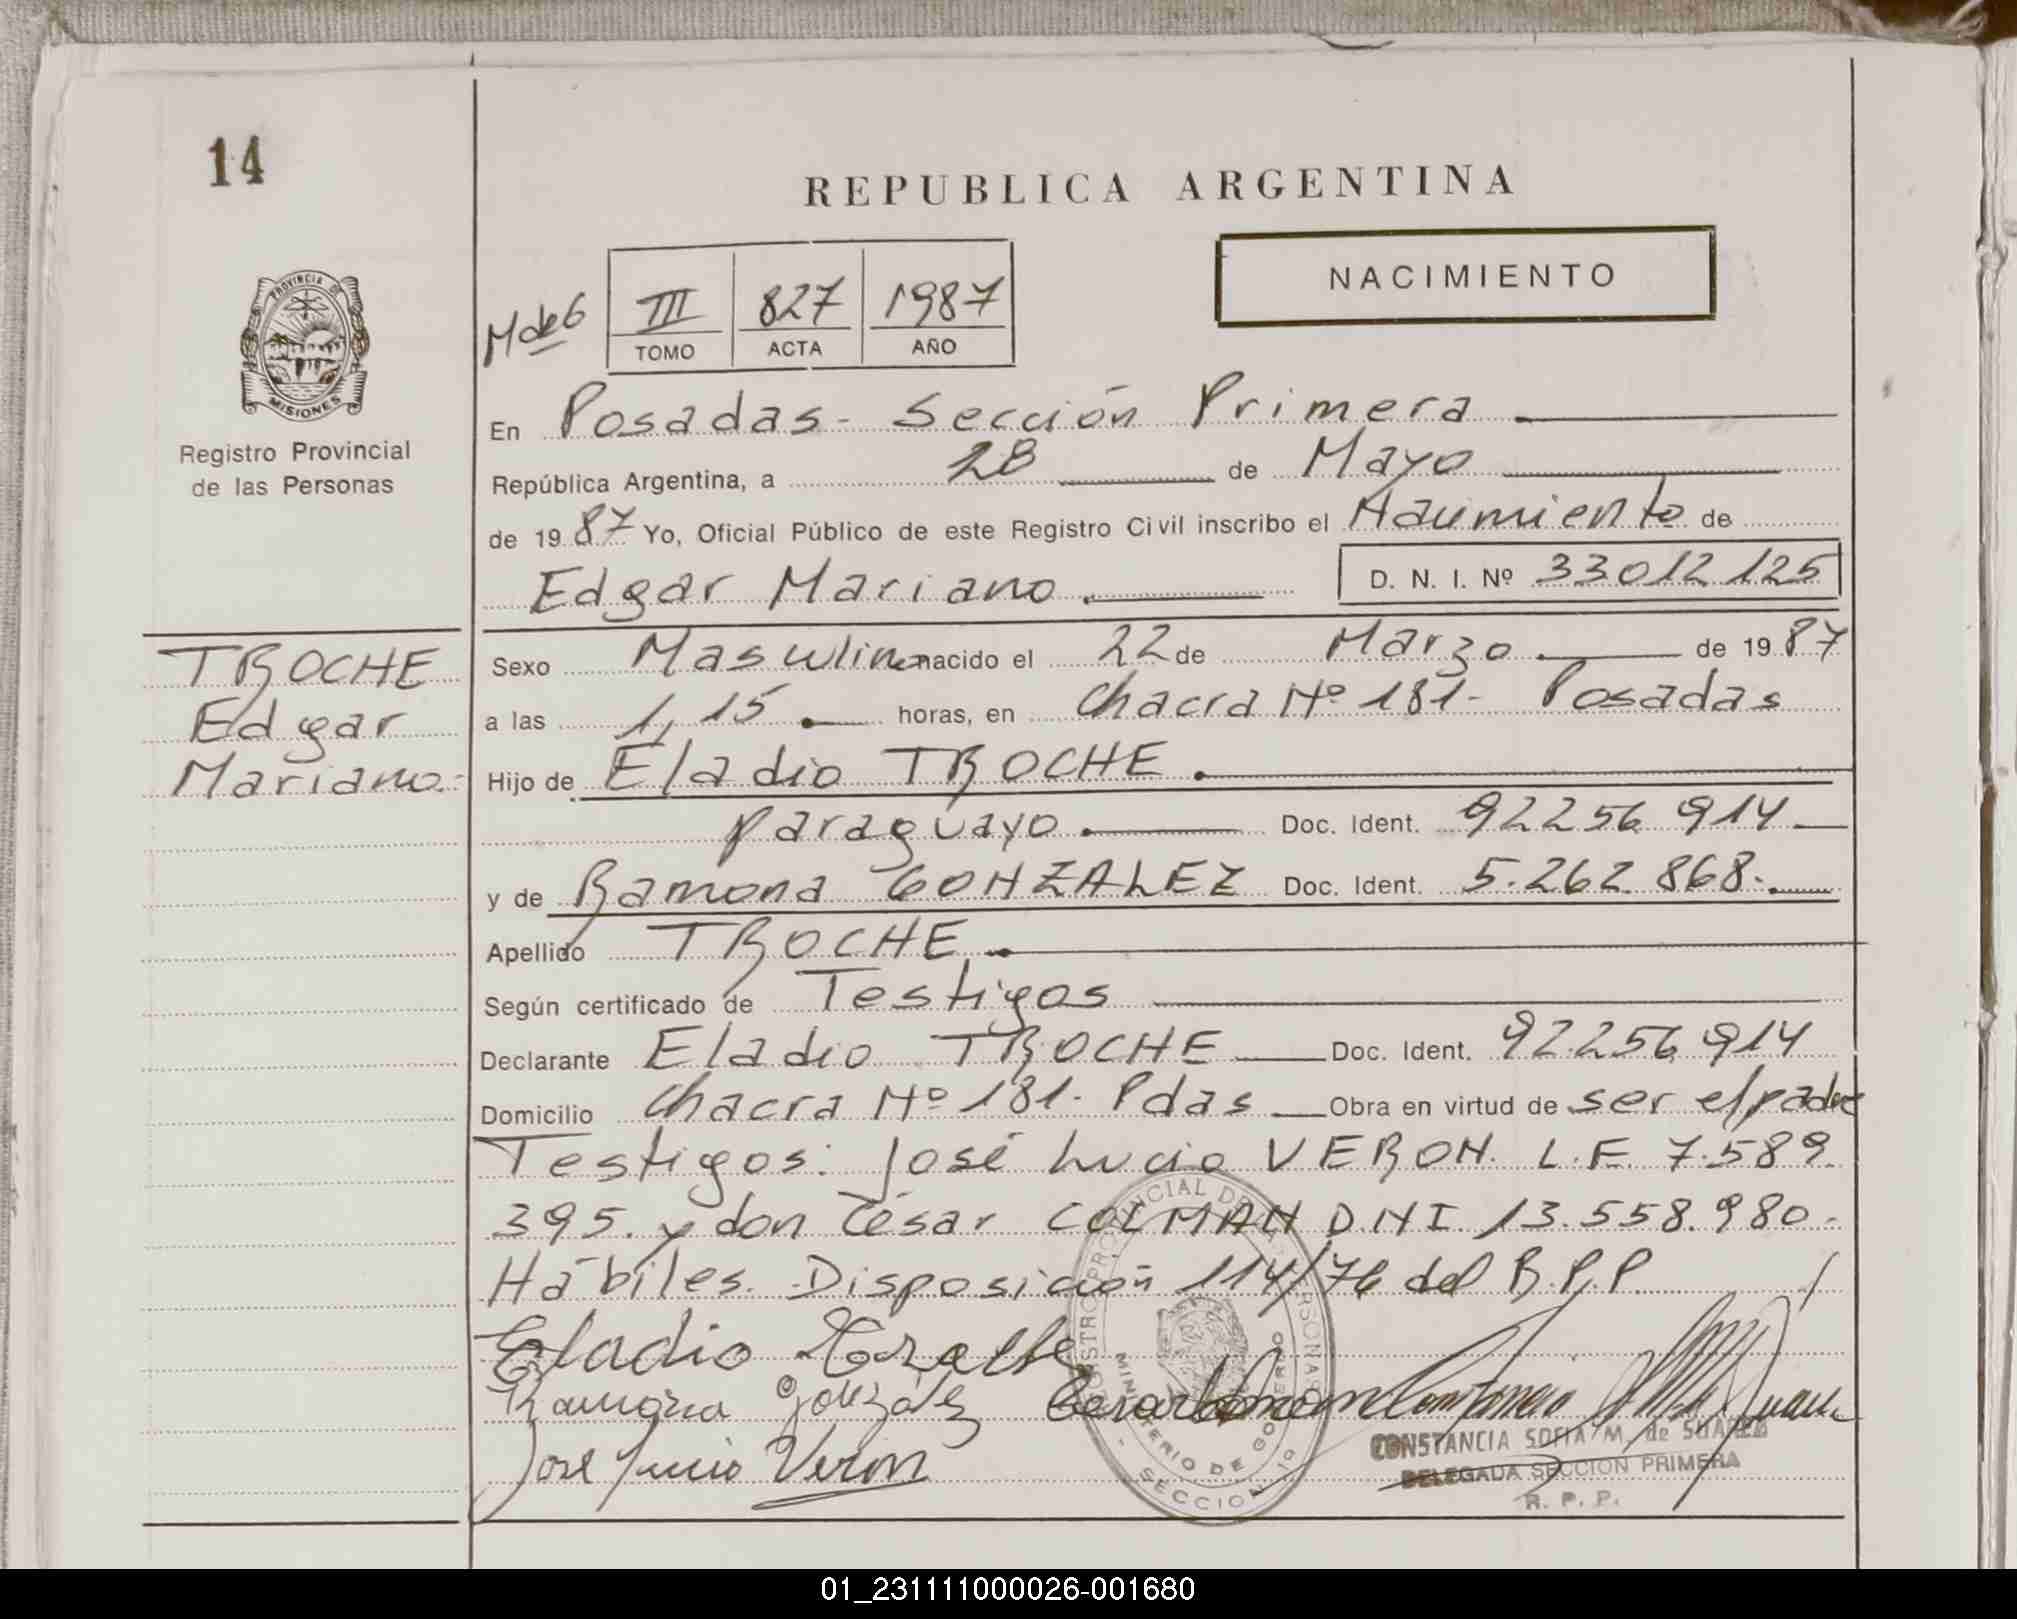 14
REPUBLICA ARGENTINA
NACIMIENTO
M de 6
III 827 1987
TOMO ACTA AÑO
PROVINCIA DE
MISIONES
Registro Provincial
de las Personas
En Posadas - Sección Primera
República Argentina, a 28 de Mayo
de 19 87 Yo, Oficial Público de este Registro Civil inscribo el Nacimiento de
Edgar Mariano. D. N. I. Nº 33012125
TROCHE
Edgar
Mariano.-
Sexo Masculino nacido el 22 de Marzo de 19 87
a las 1,15. horas, en Chacra Nº 181- Posadas
Hijo de Eladio TROCHE.
paraguayo. Doc. Ident. 92256914
y de Ramona GONZALEZ Doc. Ident. 5.262.868.-
Apellido TROCHE.
Según certificado de Testigos
Declarante Eladio TROCHE Doc. Ident. 92.256914
Domicilio Chacra Nº 181. Pdas Obra en virtud de ser el padre
Testigos: José Lucio VERON. L.E. 7.589.
395. y don César COLMAN D.N.I 13.558.980-
Hábiles. Disposición 114/76 del R.P.P.
Eladio Troche
Ramona González
José Lucio Veron
REGISTRO PROVINCIAL DE LAS PERSONAS
MINISTERIO DE GOBIERNO
- SECCION 1º
CONSTANCIA SOFIA M. de SUAREZ
DELEGADA SECCION PRIMERA
R. P. P.
01_231111000026-001680